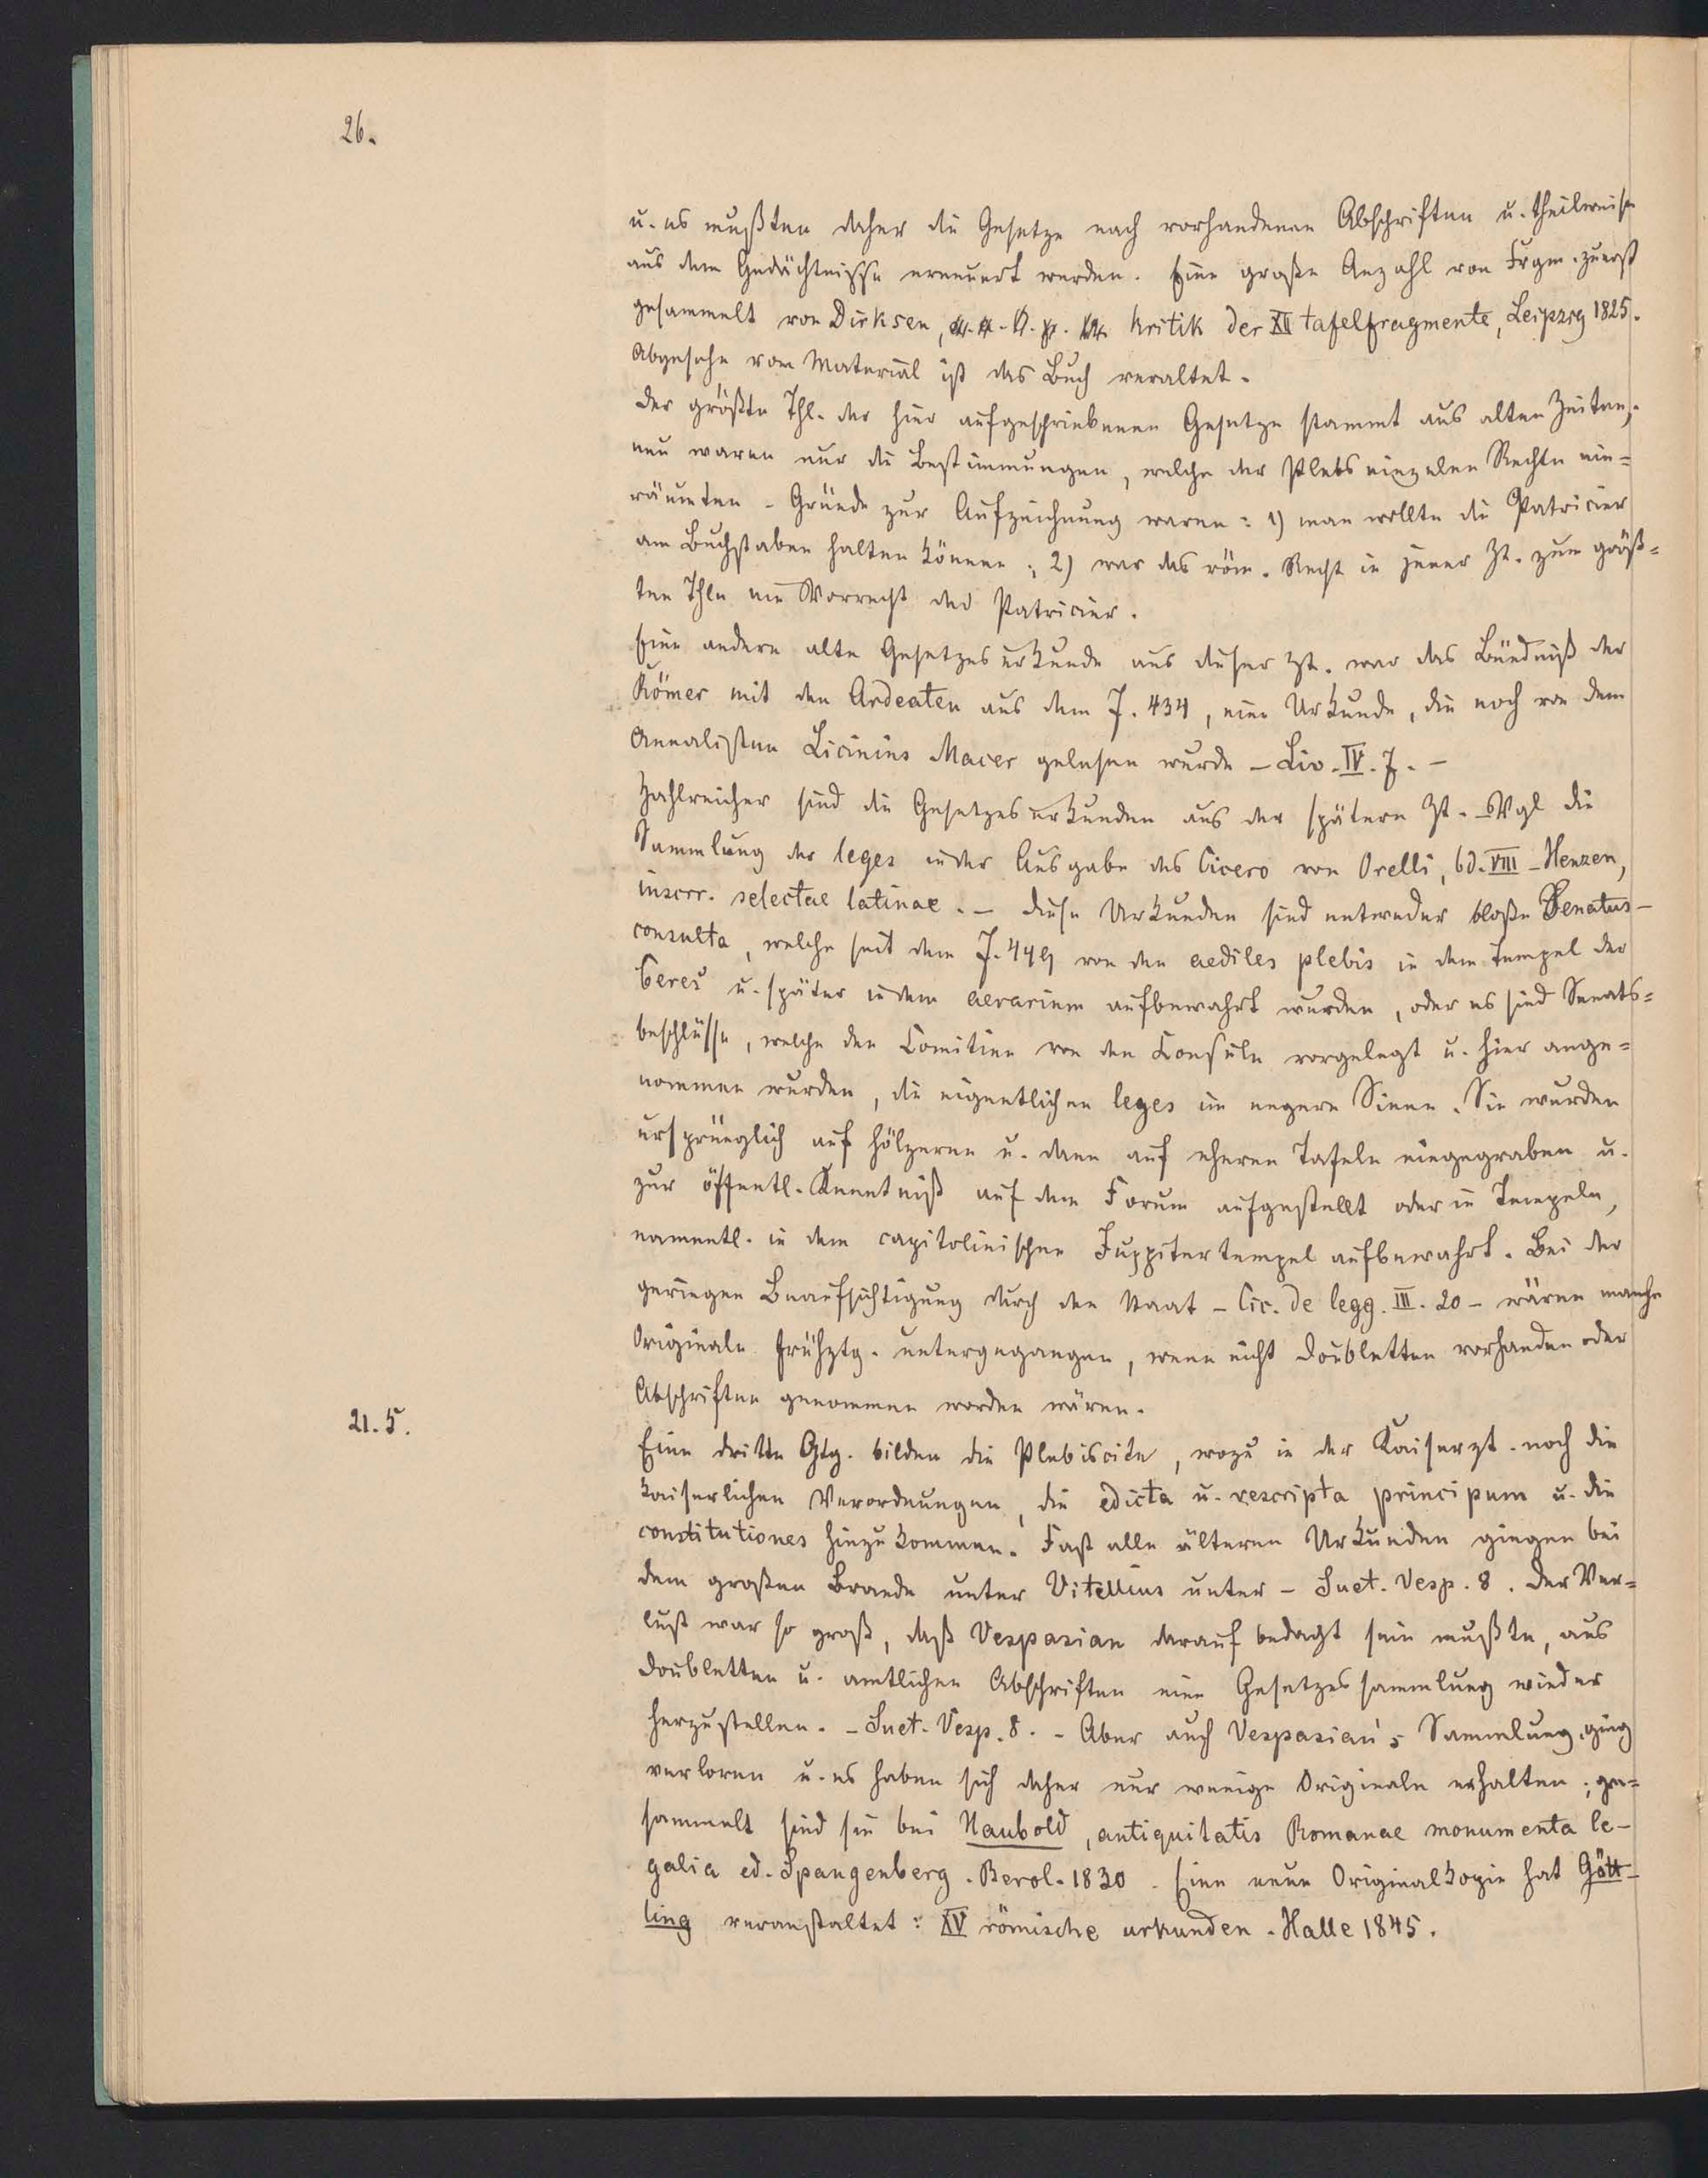 26.
u. es mußten daher die Gesetze nach vorhandenen Abschriften u. theilweise
aus dem Gedächtnisse erneuert werden. Eine große Anzahl von Frgm. zuerst
gesammelt von Dirksen, Kritik der XII tafelfragmente, Leipzig 1825.
Abgesehn vom Material ist das Buch veraltet.
Der größte Thl. der hier aufgeschriebenen Gesetze stammt aus alten Zeiten;
neu waren nur die Bestimmungen, welche der Plebs einzelne Rechte ein=
räumten. Gründe zur Aufzeichnung waren: 1) man wollte die Patricier
am Buchstaben halten können; 2) war das röm. Recht in jener Zt. zum größ=
ten Thle ein Vorrecht der Patricier.
Eine andere alte Gesetzesurkunde aus dieser Zt. war das Bündniß der
Römer mit den Ardeaten aus dem J. 434, eine Urkunde, die noch von dem
Annalisten Licinius Macer gelesen wurde – Liv. IV. 7. –
Zahlreicher sind die Gesetzesurkunden aus der spätern Zt. – Vgl die
Sammlung der leges in der Ausgabe des Cicero von Orelli, bd. VIII – Henzen,
inscrr. selectae latinae. – Diese Urkunden sind entweder bloße Senatus–
consulta, welche seit dem J. 449 von den aediles plebis in dem Tempel der
Ceres u. später in dem aerarium aufbewahrt wurden, oder es sind Senats=
beschlüsse, welche den Comitien von den Konsuln vorgelegt u. hier ange=
nommen wurden, die eigentlichen leges im engern Sinne. Sie wurden
ursprünglich auf hölzerne u. dann auf eherne Tafeln eingegraben u.
zur öffentl. Kenntniß auf dem Forum aufgestellt oder in Tempeln,
namentl. in dem capitolinischen Juppitertempel aufbewahrt. Bei der
geringen Beaufsichtigung durch den Staat – Cic. de legg. III. 20 – wären manche
Originale frühztg. untergegangen, wenn nicht Doubletten vorhanden oder
Abschriften genommen worden wären.
21. 5.
Eine dritte Gtg. bilden die Plebiscite, wozu in der Kaiserzt. noch die
kaiserlichen Verordnungen, die edicta u. rescripta principum u. die
constitutiones hinzukommen. Fast alle älteren Urkunden gingen bei
dem großen Brande unter Vitellius unter – Suet. Vesp. 8. Der Ver=
lust war so groß, daß Vespasian darauf bedagt sein mußte, aus
Doubletten u. amtlichen Abschriften eine Gesetzessammlung wieder
herzustellen. – Suet. Vesp. 8. – Aber auch Vespasian's Sammlung ging
verloren u. es haben sich daher nur wenige Originale erhalten; ge=
sammelt sind sie bei Haubold, antiquitatis Romanae monumenta le–
galia ed. Spangenberg. Berol. 1830. Eine neue Originalkopie hat Gött–
ling veranstaltet: XV römische urkunden. Halle 1845.